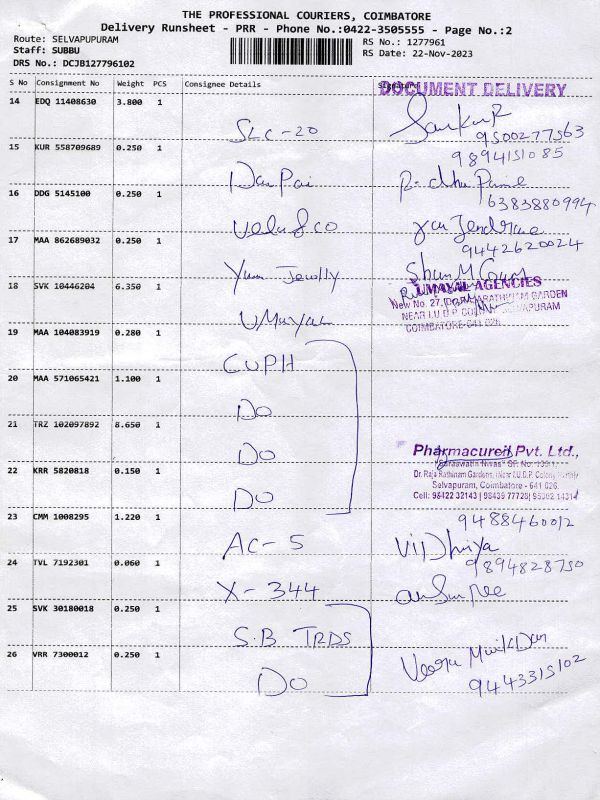 THE PROFESSIONAL COURIERS, COIMBATORE
Delivery Runsheet - PRR - Phone No.:0422-3505555 - Page No.:2
Route: SELVAPUPURAM
Staff: SUBBU
DRS No.: DCJB127796102
RS No.: 1277961
RS Date: 22-Nov-2023
S No Consignment No Weight PCS Consignee Details Signature
DOCUMENT DELIVERY
14 EDQ 11408630 3.800 1
SLC-20
9500277563
15 KUR 558709689 0.250 1
9894151085
Dar Pai
16 DDG 5145100 0.250 1
6383880994
Velu & co
17 MAA 862689032 0.250 1
9442620024
Yuva Jewelly
18 SVK 10446204 6.350 1
UMAYAL AGENCIES
New No. 27, RATHINAM GARDEN
NEAR I.U.D.P. COLONY, SELVAPURAM
COIMBATORE-641 026
UMayal
19 MAA 104083919 0.280 1
CUPH
20 MAA 571065421 1.100 1
DO
21 TRZ 102097892 8.650 1
DO
Pharmacureil Pvt. Ltd.,
"Saraswathi Nivas" SF. No: 139/1,
Dr. Raja Rathinam Gardens, (Near I.U.D.P. Colony)
Selvapuram, Coimbatore - 641 026.
Cell: 98422 32143 | 98439 77728 | 95002 14314
22 KRR 5820818 0.150 1
DO
23 CMM 1008295 1.220 1
9488460012
AC-5
VijDhiya
24 TVL 7192301 0.060 1
9894828750
X-344
25 SVK 30180018 0.250 1
S.B TRDS
26 VRR 7300012 0.250 1
9443315102
DO